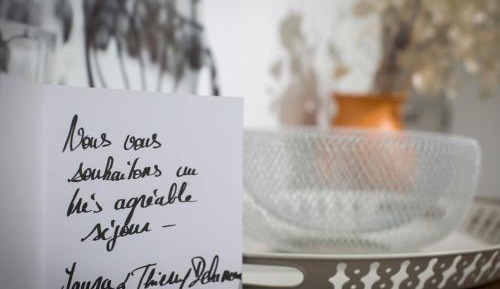 Nous vous
souhaitons un
très agréable
séjour -
& Thierry